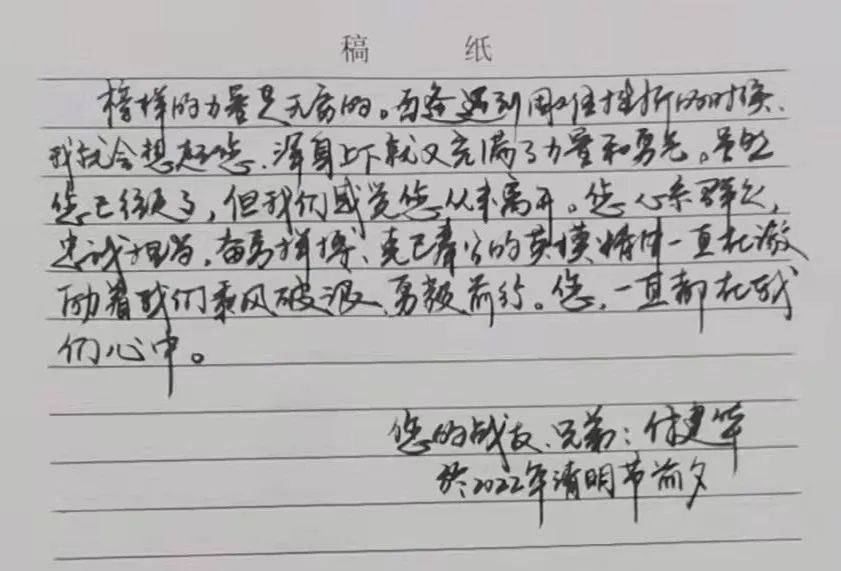 稿 纸
榜样的力量是无穷的。每逢遇到困难挫折的时候、
我就会想起您、浑身上下就又充满了力量和勇气。虽然
您已经走了，但我们感觉您从未离开。您心系群众，
忠诚担当、奋勇拼搏、克己奉公的英模精神一直在激
励着我们乘风破浪、勇毅前行。您，一直都在我
们心中。
您的战友、兄弟：建华
於2022年清明节前夕